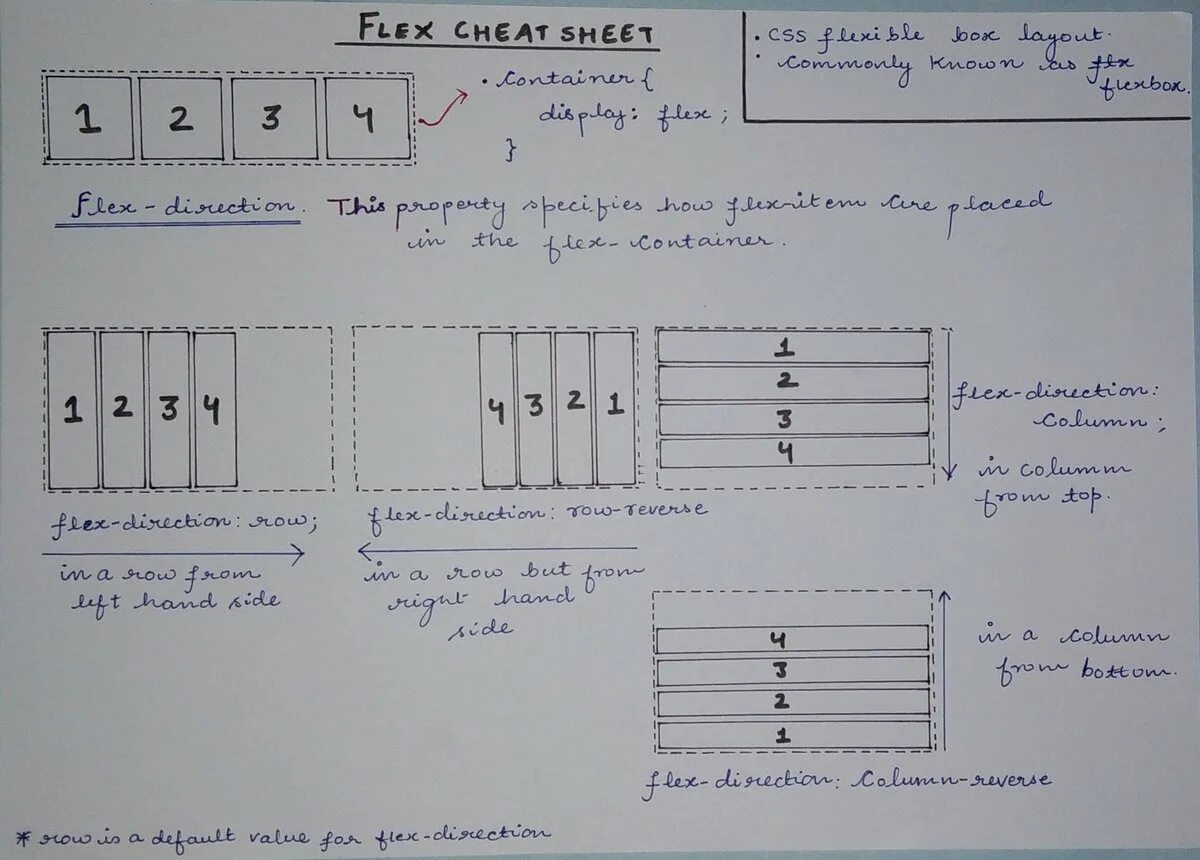 FLEX CHEAT SHEET
• CSS flexible box layout.
• Commonly known as flx
flexbox.
1 2 3 4
• container {
display: flex ;
}
flex-direction. This property specifies how flex-item are placed
in the flex-container.
1 2 3 4
flex-direction: row;
in a row from
left hand side
4 3 2 1
flex-direction: row-reverse
in a row but from
right hand
side
1
2
3
4
flex-direction:
column ;
in column
from top.
4
3
2
1
in a column
from bottom.
flex-direction: column-reverse
* row is a default value for flex-direction